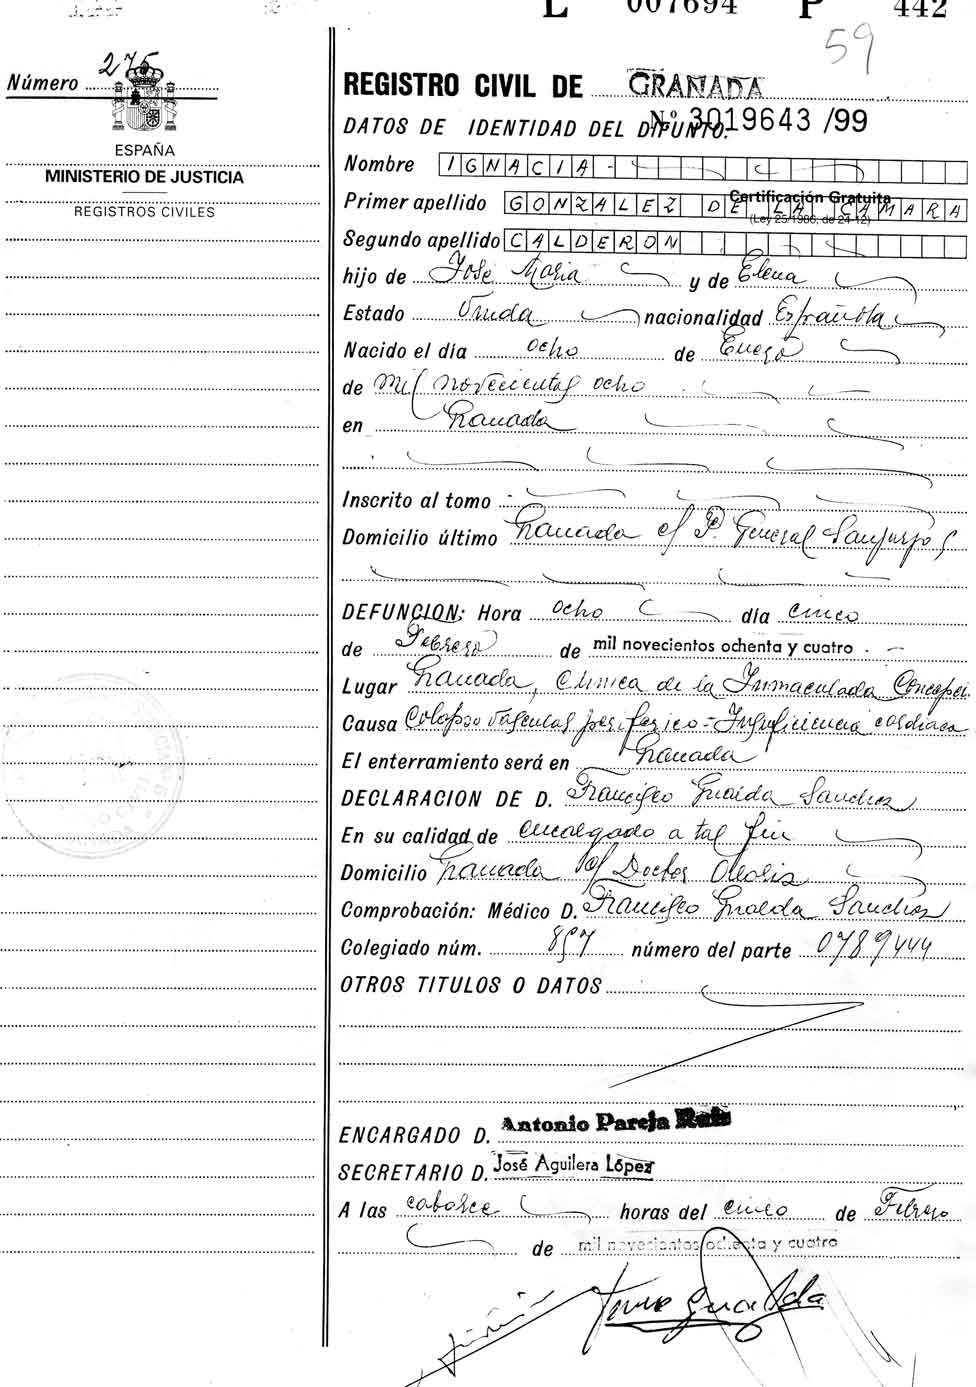 L 007694 P 442
59
Número 275
ESPAÑA
MINISTERIO DE JUSTICIA
REGISTROS CIVILES
REGISTRO CIVIL DE GRANADA
Nº 3019643 /99
DATOS DE IDENTIDAD DEL DIFUNTO:
Nombre IGNACIA
Certificación Gratuita
(Ley 25/1986, de 24-12)
Primer apellido GONZALEZ DE LA CAMARA
Segundo apellido CALDERON
hijo de José Maria y de Elena
Estado Viuda nacionalidad Española
Nacido el día ocho de Enero
de mil novecientos ocho
en Granada
Inscrito al tomo
Domicilio último Granada c/ P. General Sanjurjo
DEFUNCION: Hora ocho día cinco
de Febrero de mil novecientos ochenta y cuatro
Lugar Granada, Clinica de la Inmaculada Concepci
Causa Colapso vascular periferico - Insuficiencia cardiaca
El enterramiento será en Granada
DECLARACION DE D. Francisco Gualda Sanchez
En su calidad de encargado a tal fin
Domicilio Granada c/ Doctor
Comprobación: Médico D. Francisco Gualda Sanchez
Colegiado núm. 857 número del parte 0789444
OTROS TITULOS O DATOS
ENCARGADO D. Antonio Pareja Ruiz
SECRETARIO D. José Aguilera López
A las catorce horas del cinco de Febrero
de mil novecientos ochenta y cuatro